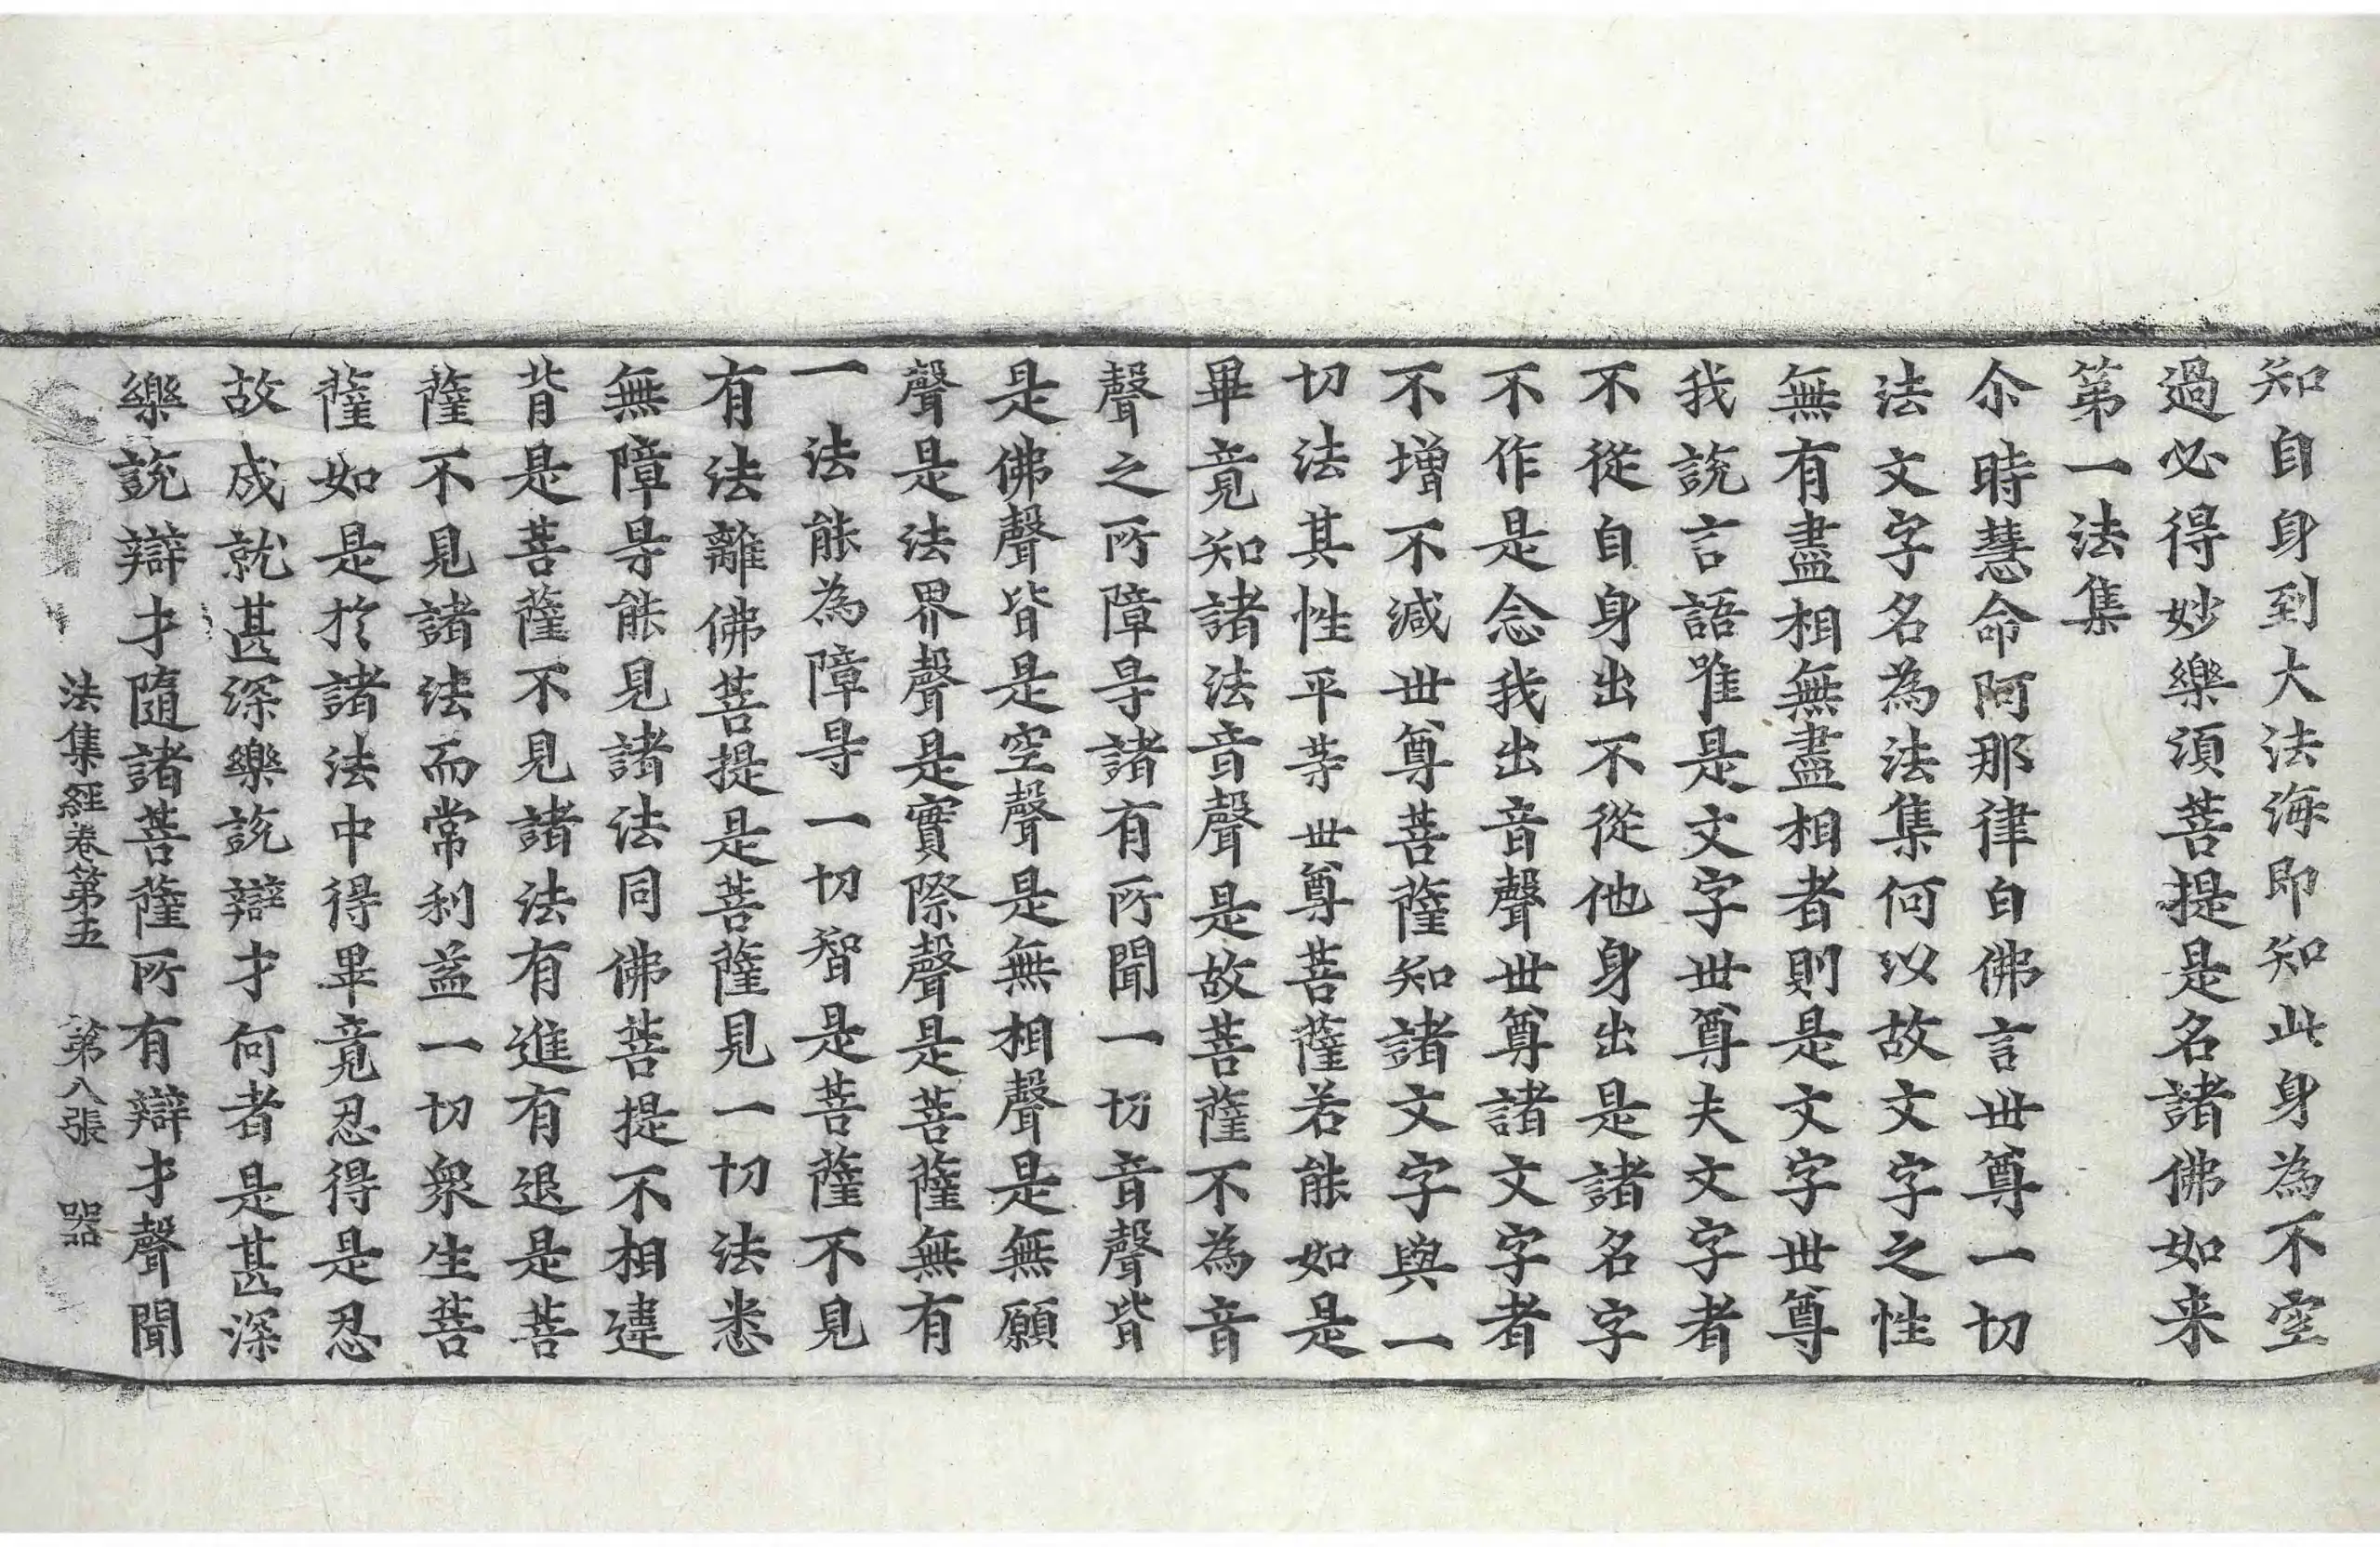 知自身到大法海即知此身為不空
過必得妙樂湏菩提是名諸佛如来
第一法集
尒時慧命阿那律白佛言世尊一切
法文字名為法集何以故文字之性
無有盡相無盡相者則是文字世尊
我說言語唯是文字世尊夫文字者
不從自身出不從他身出是諸名字
不作是念我出音聲世尊諸文字者
不增不減世尊菩薩知諸文字與一
切法其性平等世尊菩薩若能如是
畢竟知諸法音聲是故菩薩不為音
聲之所障㝵諸有所聞一切音聲皆
是佛聲皆是空聲是無相聲是無願
聲是法界聲是實際聲是菩薩無有
一法能為障㝵一切智是菩薩不見
有法離佛菩提是菩薩見一切法悉
無障㝵能見諸法同佛菩提不相違
背是菩薩不見諸法有進有退是菩
薩不見諸法而常利益一切衆生菩
薩如是於諸法中得畢竟忍得是忍
故成就甚深樂說辯才何者是甚深
樂說辯才隨諸菩薩所有辯才聲聞
法集經卷第五 第八張 器